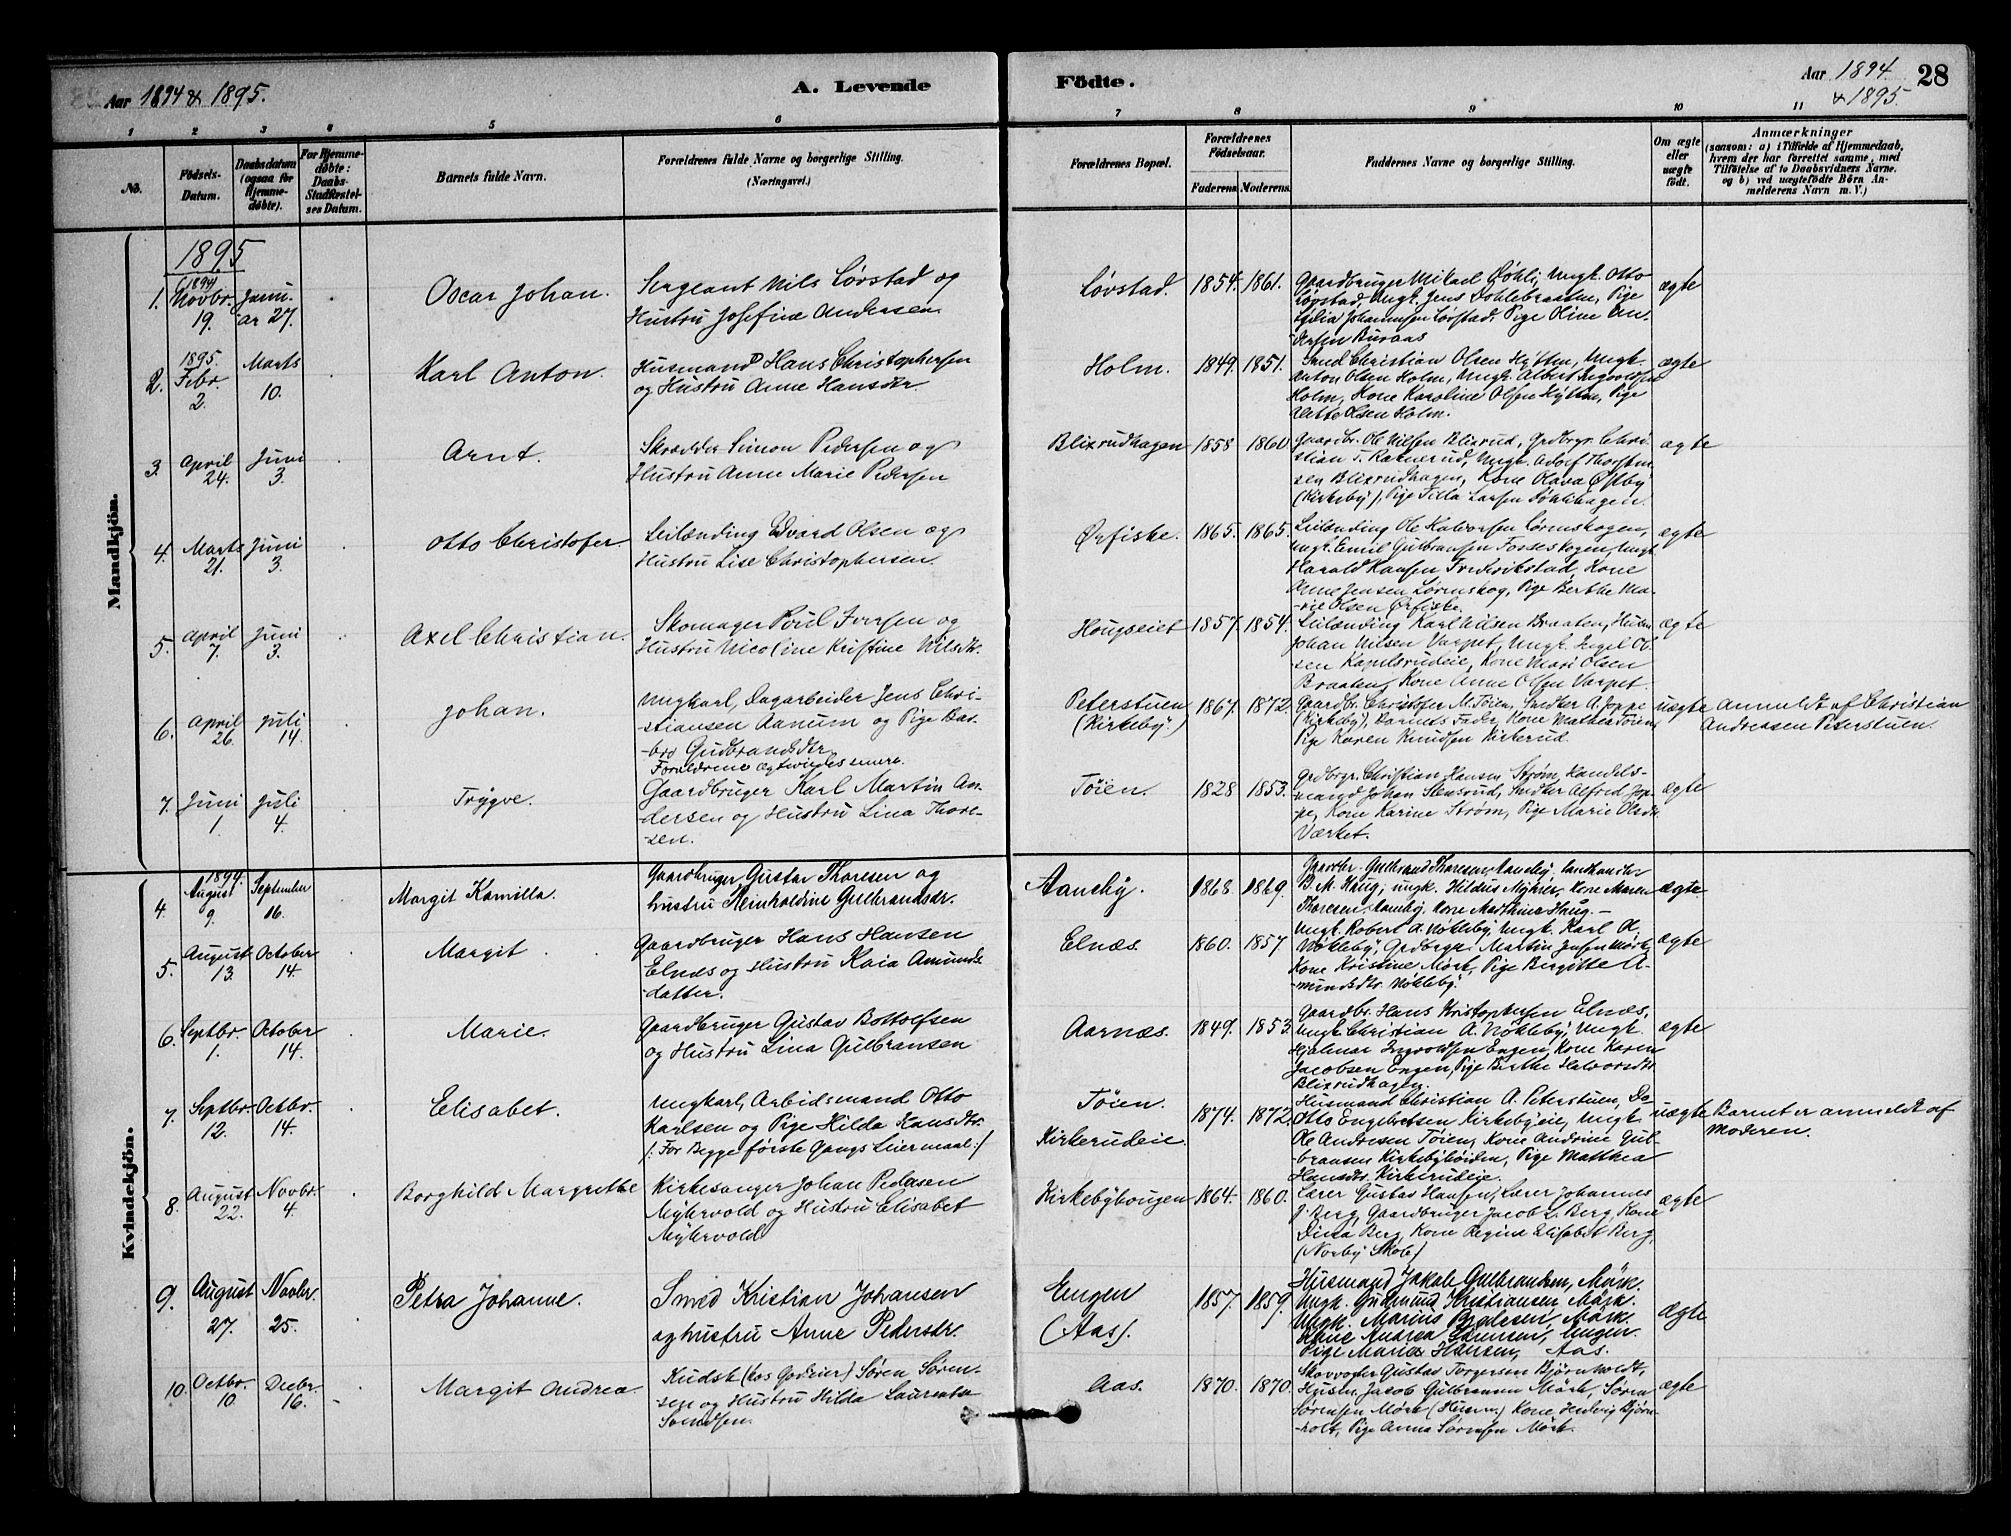 Aar 1894 & 1895.
A. Levende
Födte.
Aar 1894
& 1895.
28
1 2 3 4 5 6 7 8 9 10 11
No.
Födsels-
Datum.
Daabsdatum
(ogsaa for
Hjemme-
døbte).
For Hjemme-
døbte:
Daabs-
Stadfæstel-
ses Datum.
Barnets fulde Navn.
Forældrenes fulde Navne og borgerlige Stilling.
(Næringsvei.)
Forældrenes Bopæl.
Forældrenes
Födselsaar.
Faderens. Moderens.
Faddernes Navne og borgerlige Stilling.
Om ægte
eller
uægte
födt.
Anmærkninger
(saasom: a) i Tilfælde af Hjemmedaab,
hvem der har forrettet samme, med
Tilföielse af to Daabsvidners Navne.
og b) ved uægtefödte Börn An-
melderens Navn m. V.)
Mandkjön.
1895
1.
(1894)
Novbr.
19.
Janu-
ar 27.
Oscar Johan.
Sergeant Nils Løvstad og
Hustru Josefine Andersen
Løvstad.
1854. 1861.
Gaardbruger Mikael Døhli, Ungk. Otto
Løvstad, Ungk. Jens Dohlebraaten, Pige
Lydia Johannsen Løvstad. Pige Oline An-
dersen Buraas
ægte
2.
1895.
Febr.
2.
Marts
10.
Karl Anton.
Husmand Hans Christophersen
og Hustru Anne Hansdtr.
Holm.
1849. 1851.
Smed Christian Olsen Hytten, Ungk.
Anton Olsen Holm, Ungk. Albert Ingvoldsen
Holm, Kone Karoline Olsen Hytten, Pige
Olsen Holm.
ægte
3.
April
24.
Juni
3.
Arnt.
Skrædder Simon Pedersen og
Hustru Anne Marie Pedersen
Blixrudhagen
1858 1860
Gaardbr. Ole Nilsen Blixrud, Grdbrgr. Chri-
stian T. Raknerud, Ungk. Adolf Thorsten-
sen Blixrudhagen, Kone Olava Østby
(Kirkeby), Pige Tilla Larsen Døhlihagen.
ægte
4.
Marts
21.
Juni
3.
Otto Christofer.
Leilænding Edvard Olsen og
Hustru Lise Christophersen.
Ørfiske.
1865. 1865.
Leilænding Ole Halvorsen Lørenskogen,
Ungk. Emil Gulbransen Fosseskogen, Ungk.
Harald Hansen Frederikstad, Kone
Anne Jensen Lørenskog, Pige Berthe Ma-
rie Olsen Ørfiske.
ægte
5.
April
7.
Juni
3.
Axel Christian.
Skomager Poul Iversen og
Hustru Nicoline Kristine Nilsdtr.
Hougseiet
1857. 1854.
Leilænding Karl Nilsen Braaten, Husm.
Johan Nilsen Varpet, Ungk. Ingel Ol-
sen Kapelsrudeie, Kone Mari Olsen
Braaten, Kone Anne Olsen Varpet.
ægte
6.
April
26.
Juli
14.
Johan.
Ungkarl, Dagarbeider Jens Chri-
stiansen Aanum og Pige Bar-
bro Gudbrandsdtr.
Forældrene ægteviedes senere.
Peterstuen
(Kirkeby.)
1867. 1872.
Gaardbr. Christofer M. Tøien, Snedker A. Joppe
(Kirkeby), Barnets Fader, Kone Mathea Tøien,
Pige Karen Knudsen Kirkerud.
uægte
Anmeldt af Christian
Andreasen Peterstuen.
7.
Juni
1.
Juli
4.
Trygve.
Gaardbruger Karl Martin An-
dersen og Hustru Lina Thore-
sen.
Tøien.
1828 1853.
Grdbrgr. Christian Hansen Strøm, Handels-
mand Johan Stensrud, Snedker Alfred Jop-
pe, Kone Karine Strøm, Pige Marie Olsdtr.
Værket.
ægte
Kvindekjön.
4.
1894.
August
9.
September
16.
Margit Kamilla.
Gaardbruger Gustav Thoresen og
hustru Reinholdine Gulbrandsdr.
Aaneby.
1868. 1869.
Gaardbr. Gulbrand Thoresen Aaneby, landhandler
B. M. Haug, ungk. Hildus Myhrer, Kone Maren
Thoresen Aaneby. Kone Mathine Haug. –
ægte
5.
August
13.
October
14.
Margit.
Gaardbruger Hans Hansen
Elnæs og Hustru Kaia Amunds-
datter.
Elnæs.
1860. 1857
Ungk. Robert A. Nøkleby, Ungk. Karl A.
Nøkleby, Grdbrgr. Martin Jensen Mørk,
Kone Kristine Mørk, Pige Bergitte A-
mundsdtr. Nøkleby.
ægte
6.
Septbr.
1.
October
14.
Marie.
Gaardbruger Gustav Bottolfsen
og Hustru Lina Gulbransen
Aarnæs.
1849. 1853.
Gaardbr. Hans Kristophersen Elnæs,
Ungk. Christian A. Nøkleby, Ungk.
Hjalmar Ingvoldsen Engen, Kone Karen
Jacobsen Engen, Pige Berthe Halvorsdtr.
Blixrudhagen.
ægte
7.
Septbr.
12.
Octbr.
14.
Elisabet.
Ungkarl, Arbeidsmand Otto
Karlsen og Pige Hilda Hansdtr.
/: For Begge første Gangs Leiermaal :/
Tøien.
Kirkerudeie.
1874. 1872.
Husmand Christian A. Peterstuen, Do
Otto Engebretsen Kirkebyeie, Ungk.
Ole Andresen Tøien, Kone Andrine Gul-
bransen Kirkebyhøiden, Pige Matthea
Hansdtr. Kirkerudeie.
uægte
Barnet er anmeldt af
Moderen.
8.
August
22.
Novbr.
4.
Borghild Margrethe
Kirkesanger Johan Pedersen
Myhrvold og Hustru Elisabet
Myhrvold
Kirkebyhougen
1864. 1860.
Lærer Gustav Hansen, Lærer Johannes
J. Berg, Gaardbruger Jacob L. Berg, Kone
Dina Berg, Kone Regine Elisabet Berg,
(Norby Skole)
ægte
9.
August
27.
Novbr.
25.
Petra Johanne.
Smed Kristian Johansen
og hustru Anne Pedersdr.
Engen
(Aas).
1857. 1859.
Husmand Jakob Gulbrandsen, Mörk.
Ungk. Gudmund Kristiansen Mörk.
Ungk. Marius Pedersen, Mörk.
Kone Andrea Sörensen, Engen.
Pige Maria Hansen, Aas.
ægte
10.
Octbr.
10.
Decbr.
16.
Margit Andrea
Kudsk (hos Godseier) Søren Søren-
sen og Hustru Hilda Laurentse
Svendsen.
Aas.
1870. 1870.
Skovvogter Gustav Torgersen Bjørnholdt,
Husm. Jacob Gulbransen Mørk, Søren
Sørensen Mørk (Husm.) Kone Hedvig Bjørn-
holt, Pige Anna Sørensen Mørk.
ægte